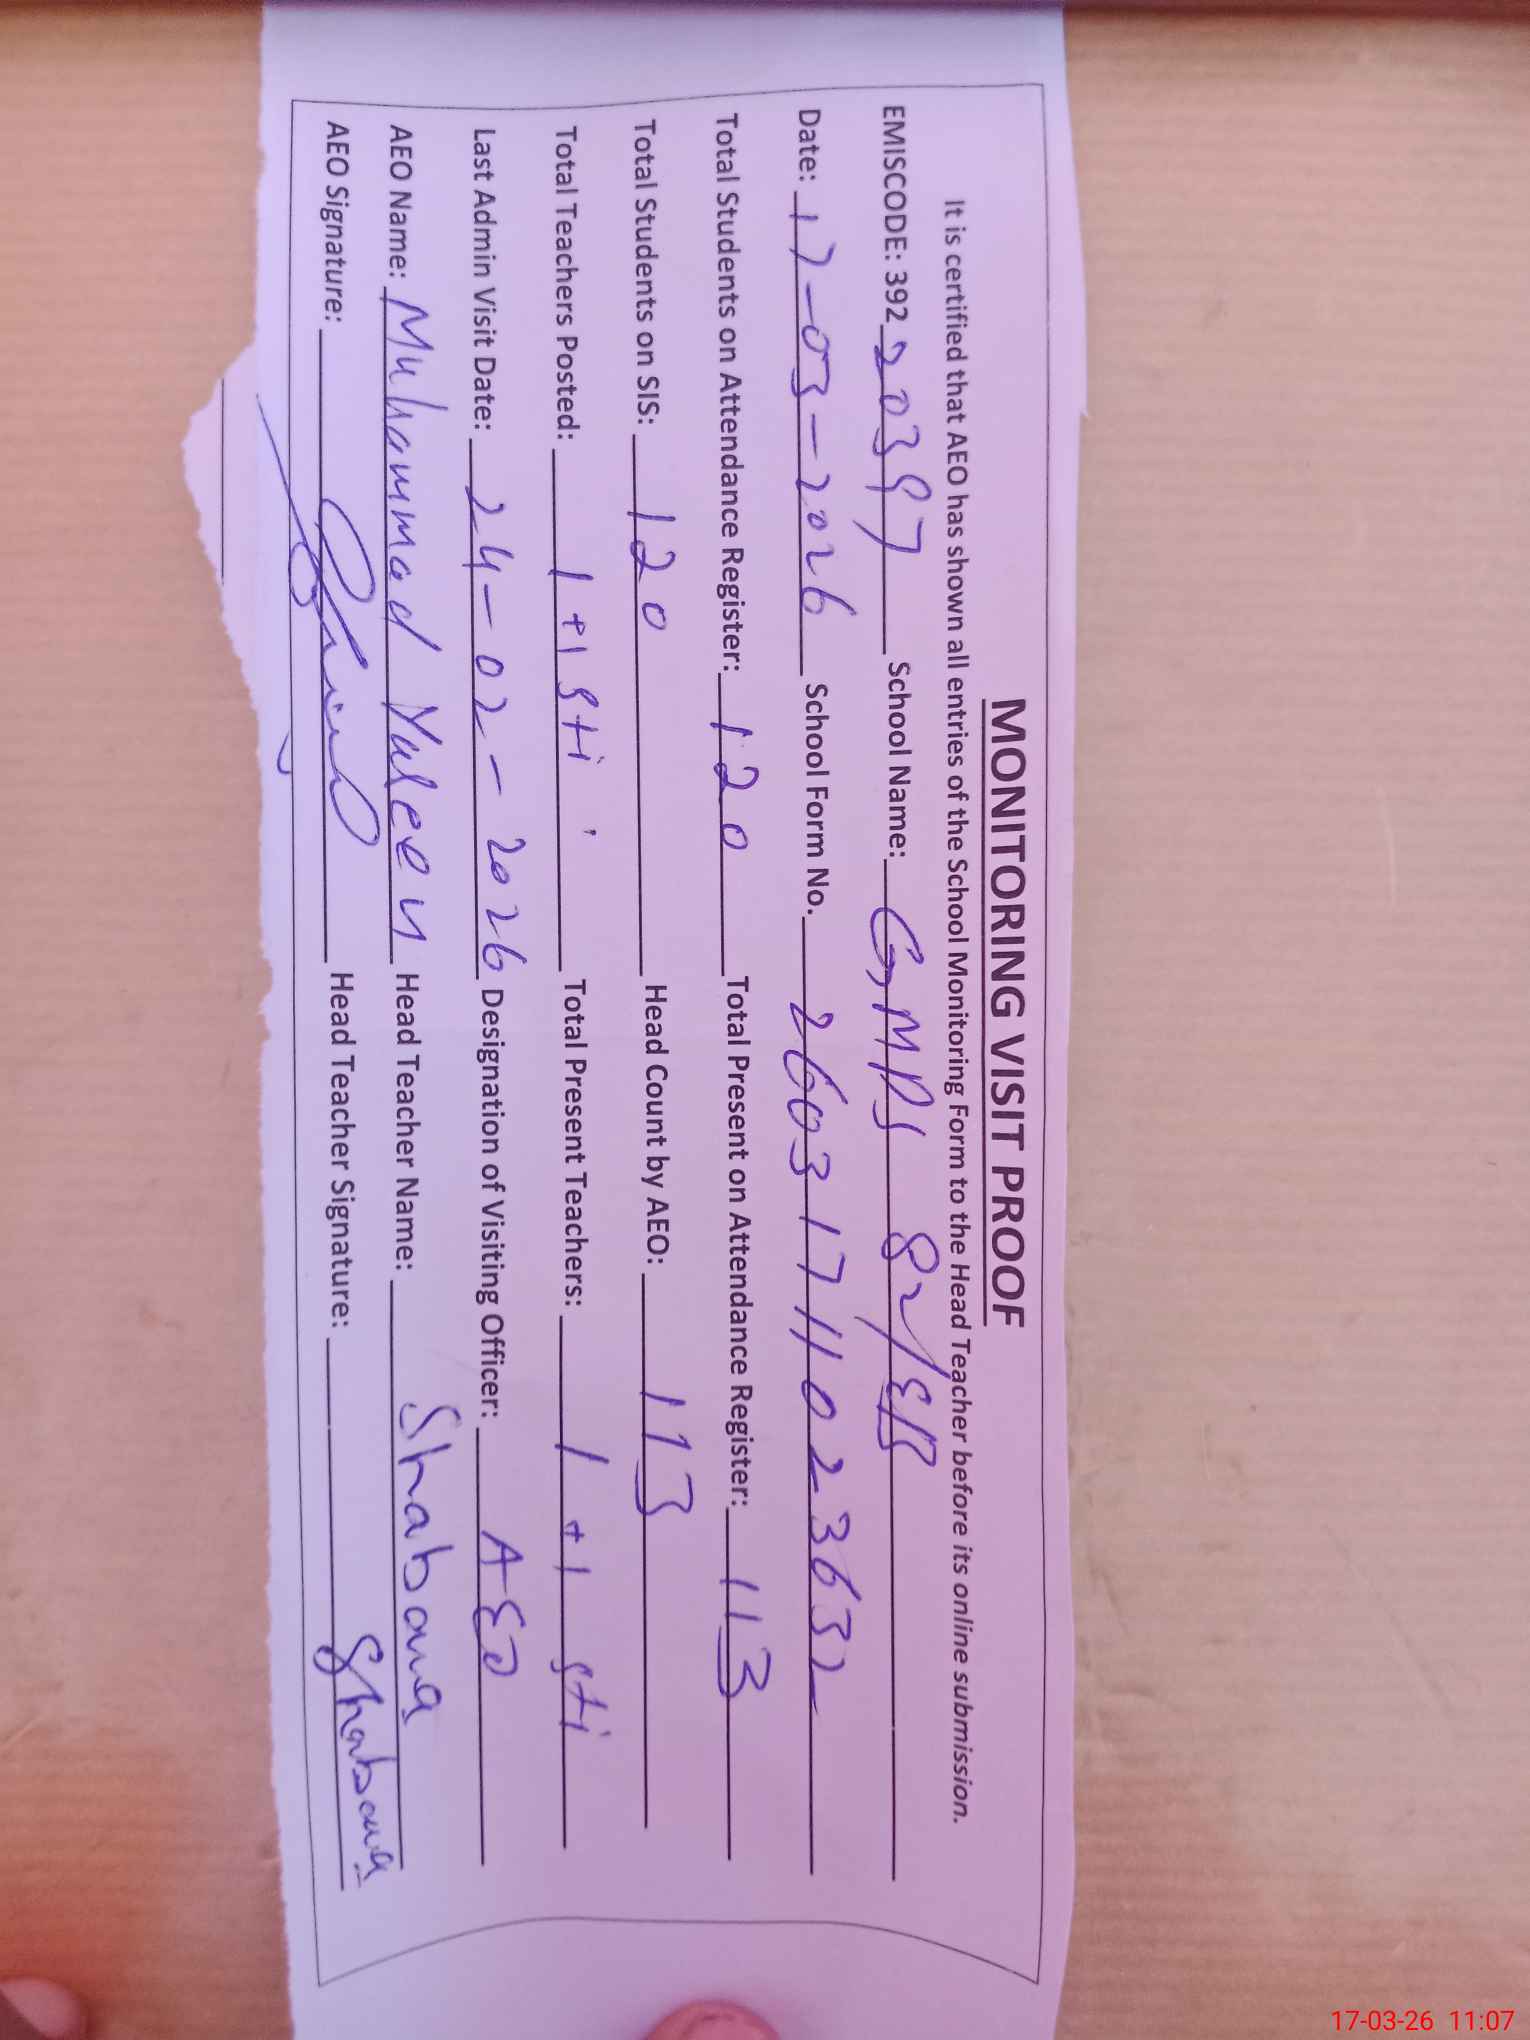 MONITORING VISIT PROOF
It is certified that AEO has shown all entries of the School Monitoring Form to the Head Teacher before its online submission.
EMISCODE: 39220397 School Name: GMPS 82/EB
Date: 17-03-2026 School Form No. 26031711023632
Total Students on Attendance Register: 120 Total Present on Attendance Register: 113
Total Students on SIS: 120 Head Count by AEO: 113
Total Teachers Posted: 1 +1 sti Total Present Teachers: 1 +1 sti
Last Admin Visit Date: 24-02-2026 Designation of Visiting Officer: AEO
AEO Name: Muhammad Yaleen Head Teacher Name: Shabana
AEO Signature: Head Teacher Signature: Shabana
17-03-26 11:07